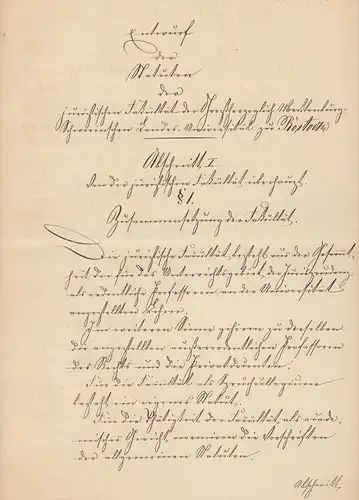 Entwurf
der
Statuten
der
juristischen Fakultät der Großherzoglich Mecklenburg-
Schwerinschen Landes-Universität zu Rostock
Abschnitt I.
Von der juristischen Fakultät überhaupt.
§ 1.
Zusammensetzung der Fakultät.
Die juristische Fakultät besteht aus der Gesammt-
heit der für das Unterrichtsgebiet der Jurisprudenz
als ordentliche Professoren an der Universität
angestellten Lehrer.
Im weiteren Sinne gehören zu derselben
die angestellten außerordentlichen Professoren
des Rechts und die Privatdocenten.
Für die Fakultät als Spruchcollegium
besteht ein eigenes Statut.
Für die Thätigkeit der Fakultät als akade-
misches Gericht, normiren die Vorschriften
der allgemeinen Statuten.
Abschnitt